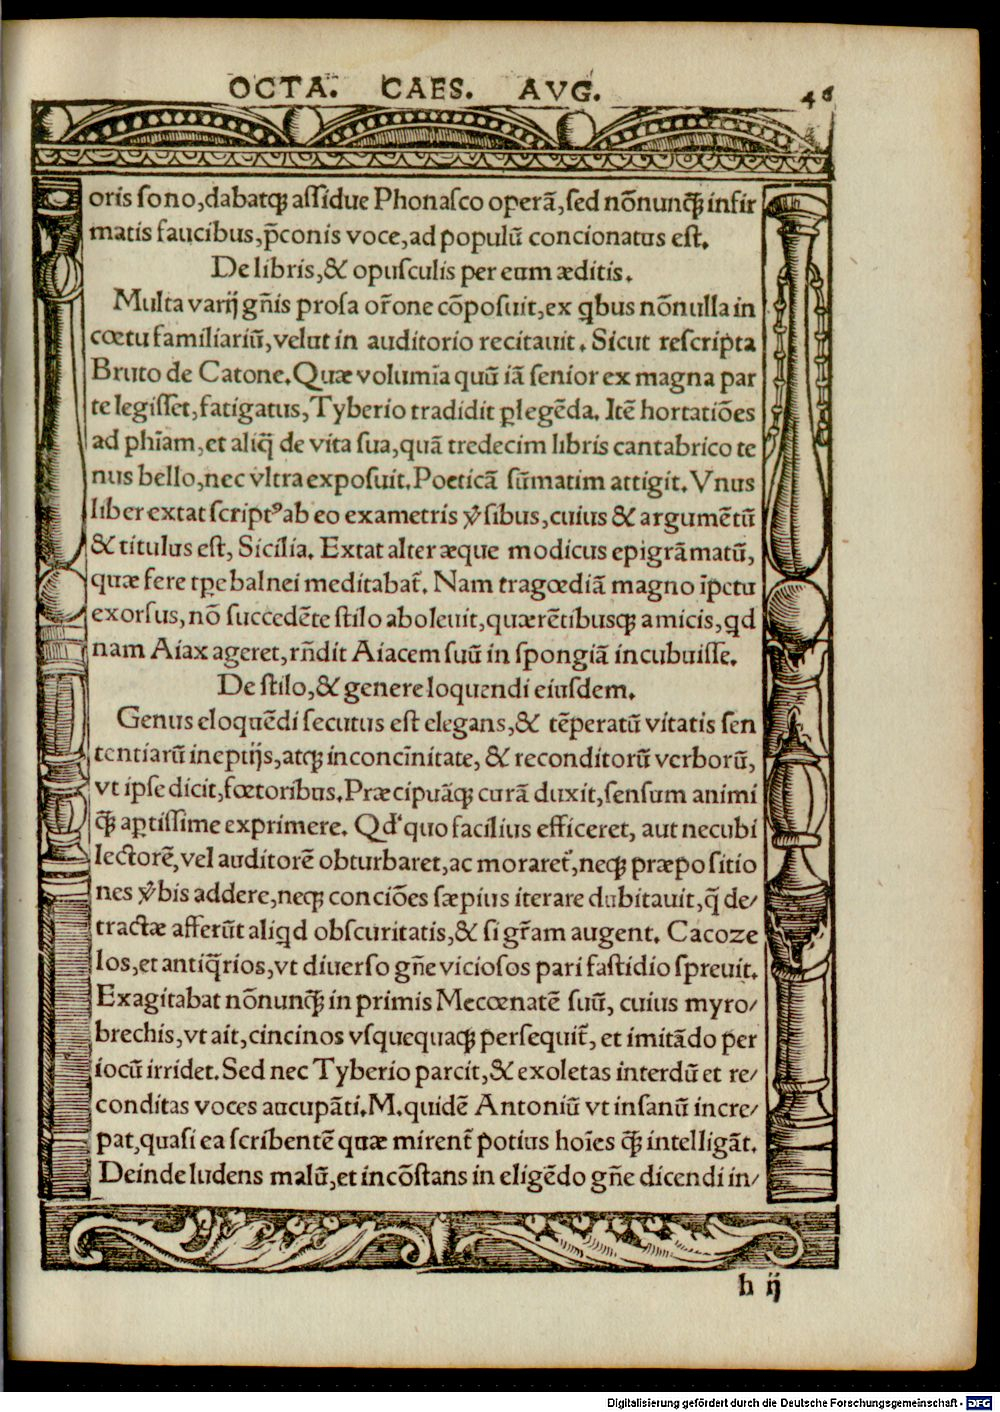 OCTA. CAES. AVG. 48
oris ſono,dabatqꝫ aſſidue Phonaſco operã,ſed nõnunꝙ̃ infir
matis faucibus,p̃conis voce,ad populũ concionatus eſt.
De libris,& opuſculis per eum æditis.
Multa varij gñis proſa or̃one cõpoſuit,ex qbus nõnulla in
cœtu familiariũ,velut in auditorio recitauit. Sicut reſcripta
Bruto de Catone.Quæ volumĩa quũ iã ſenior ex magna par
te legiſſet,fatigatus,Tyberio tradidit ꝑlegẽda. Itẽ hortatiões
ad phĩam,et aliq̃ de vita ſua,quã tredecim libris cantabrico te
nus bello,nec vltra expoſuit.Poeticã ſũmatim attigit. Vnus
liber extat ſcriptꝰ ab eo exametris ṽſibus,cuius & argumẽtũ
& titulus eſt, Sicilia. Extat alter æque modicus epigrãmatũ,
quæ fere tꝑe balnei meditabat̃. Nam tragœdiã magno ĩpetu
exorſus,nõ ſuccedẽte ſtilo aboleuit,quærẽtibusqꝫ amicis,qd
nam Aiax ageret,rñdit Aiacem ſuũ in ſpongiã incubuiſſe.
De ſtilo,& genere loquendi eiuſdem.
Genus eloquẽdi ſecutus eſt elegans,& tẽperatũ vitatis ſen
tentiarũ ineptijs,atqꝫ inconcĩnitate, & reconditorũ verborũ,
vt ipſe dicit,fœtoribus.Præcipuãqꝫ curã duxit,ſenſum animi
ꝙ̃ aptiſſime exprimere. Qdʼ quo facilius efficeret, aut necubi
lectorẽ,vel auditorẽ obturbaret,ac moraret̃,neqꝫ præpoſitio
nes ṽbis addere,neqꝫ conciões ſæpius iterare dubitauit,q̃ de/
tractæ afferũt aliqd obſcuritatis,& ſi gr̃am augent. Cacoze
los,et antiq̃rios,vt diuerſo gñe vicioſos pari faſtidio ſpreuit.
Exagitabat nõnunꝙ̃ in primis Mecœnatẽ ſuũ, cuius myro/
brechis,vt ait,cincinos vſquequaqꝫ perſequit̃, et imitãdo per
iocũ irridet.Sed nec Tyberio parcit,& exoletas interdũ et re/
conditas voces aucupãti.M.quidẽ Antoniũ vt inſanũ incre/
pat,quaſi ea ſcribentẽ quæ mirent̃ potius hoĩes ꝙ̃ intelligãt.
Deinde ludens malũ,et incõſtans in eligẽdo gñe dicendi in/
h ij
Digitalisierung gefördert durch die Deutsche Forschungsgemeinschaft - DFG